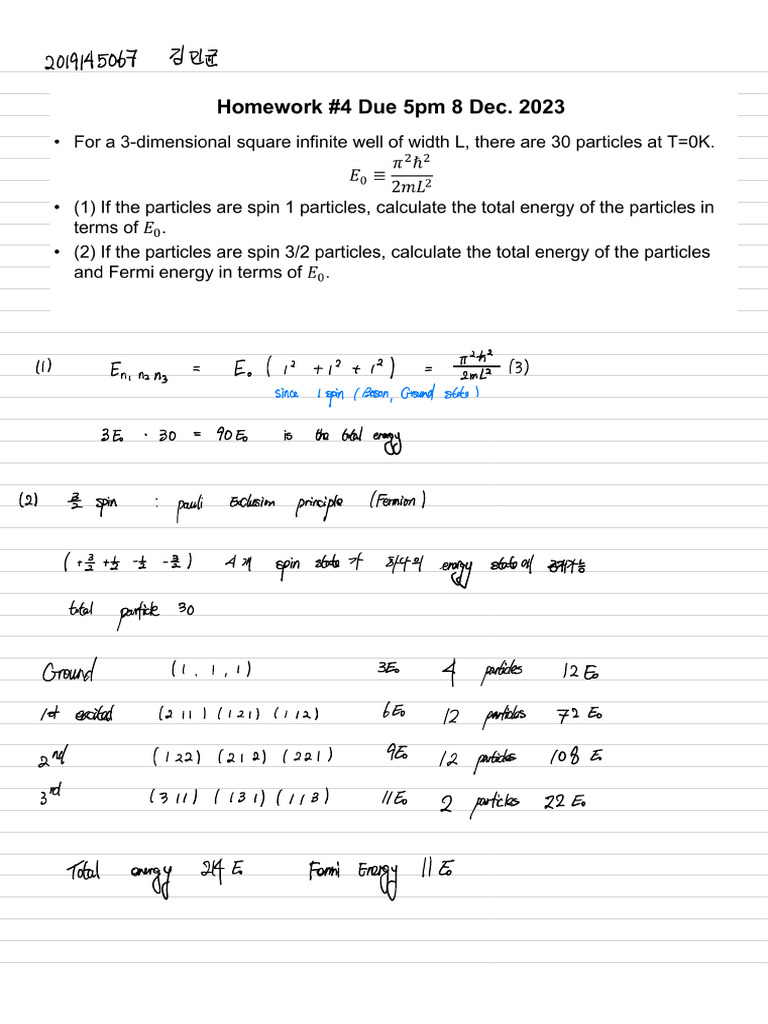 2019145067 김민균
Homework #4 Due 5pm 8 Dec. 2023
• For a 3-dimensional square infinite well of width L, there are 30 particles at T=0K.
E₀ ≡ π²ℏ² / 2mL²
• (1) If the particles are spin 1 particles, calculate the total energy of the particles in
terms of E₀.
• (2) If the particles are spin 3/2 particles, calculate the total energy of the particles
and Fermi energy in terms of E₀.
(1) E n₁ n₂ n₃ = E₀ ( 1² + 1² + 1² ) = π²ℏ² / 2mL² (3)
since 1 spin (Boson, Ground state)
3E₀ · 30 = 90E₀ is the total energy
(2) 3/2 spin : pauli Exclusion principle (Fermion)
( +3/2 +1/2 -1/2 -3/2 ) 4개 spin state가 하나의 energy state에 존재가능
total particle 30
Ground (1, 1, 1) 3E₀ 4 particles 12E₀
1st excited (211) (121) (112) 6E₀ 12 particles 72E₀
2nd (122) (212) (221) 9E₀ 12 particles 108 E
3rd (311) (131) (113) 11E₀ 2 particles 22E₀
Total energy 214 E₀ Fermi Energy 11 E₀